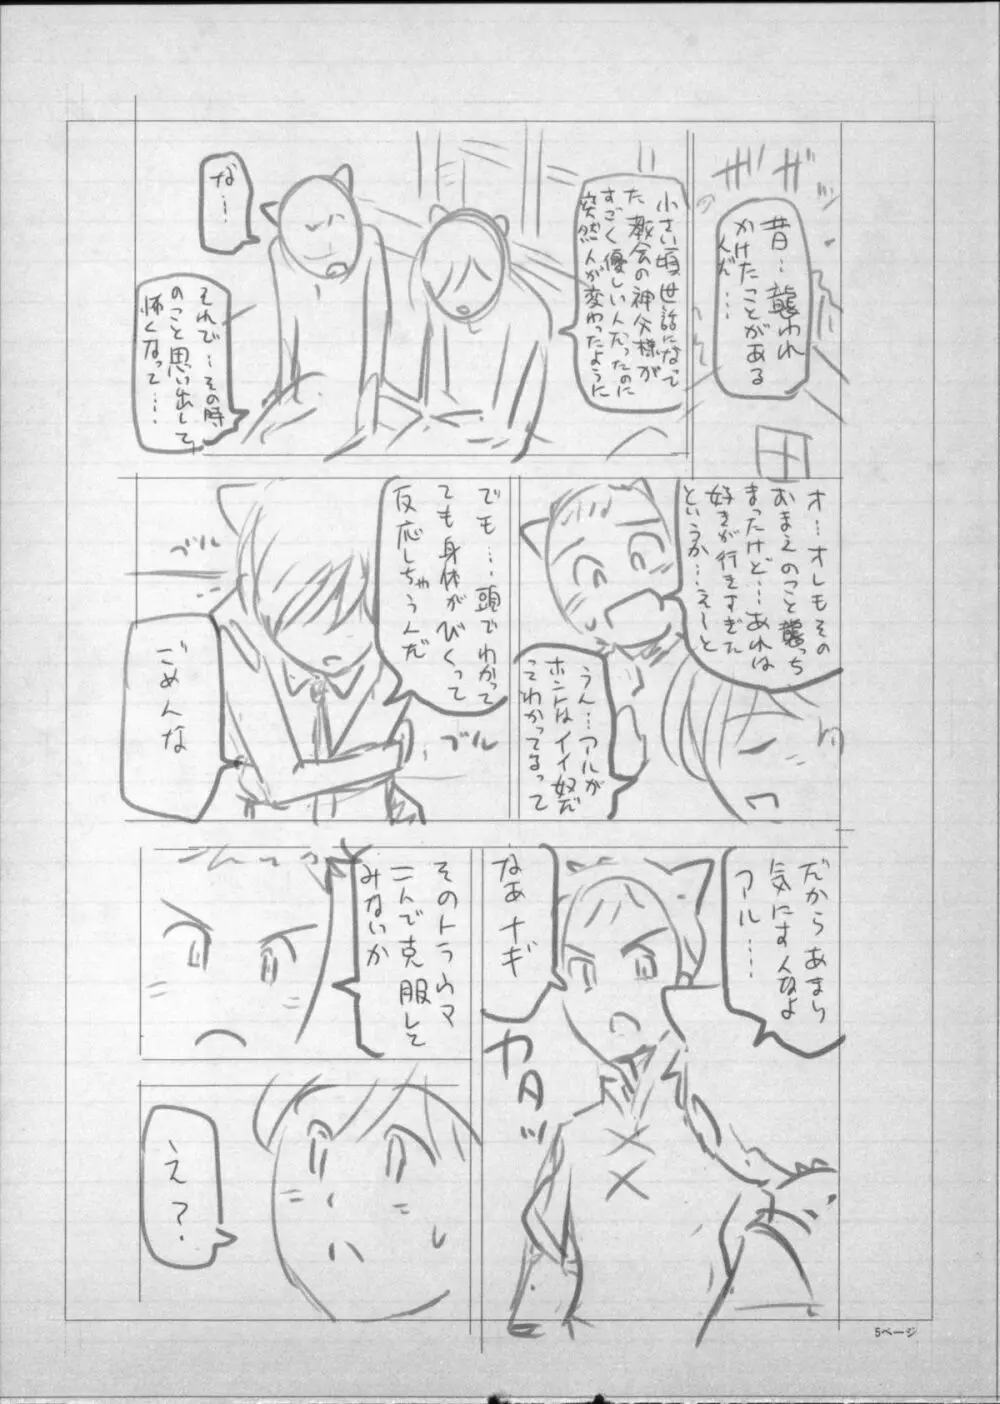 ザザッ
昔…襲われ
かけたことがある
んだ……
小さい頃世話になって
た教会の神父様が
すごく優しい人だったのに
突然人が変わったように
な…!
それで…その時
のこと思い出して
怖くなって……
オ…オレもその
おまえのこと襲っち
まったけど…あれは
好きが行きすぎた
というか…えーと
うん…アルが
ホントはイイ奴だ
ってわかってるって
でも…頭でわかって
ても身体がびくって
反応しちゃうんだ
ブル
ブル
ごめんな
だからあまり
気にすんなよ
アル……
なあナギ
ガタッ
そのトラウマ
二人で克服して
みないか
え?
5ページ